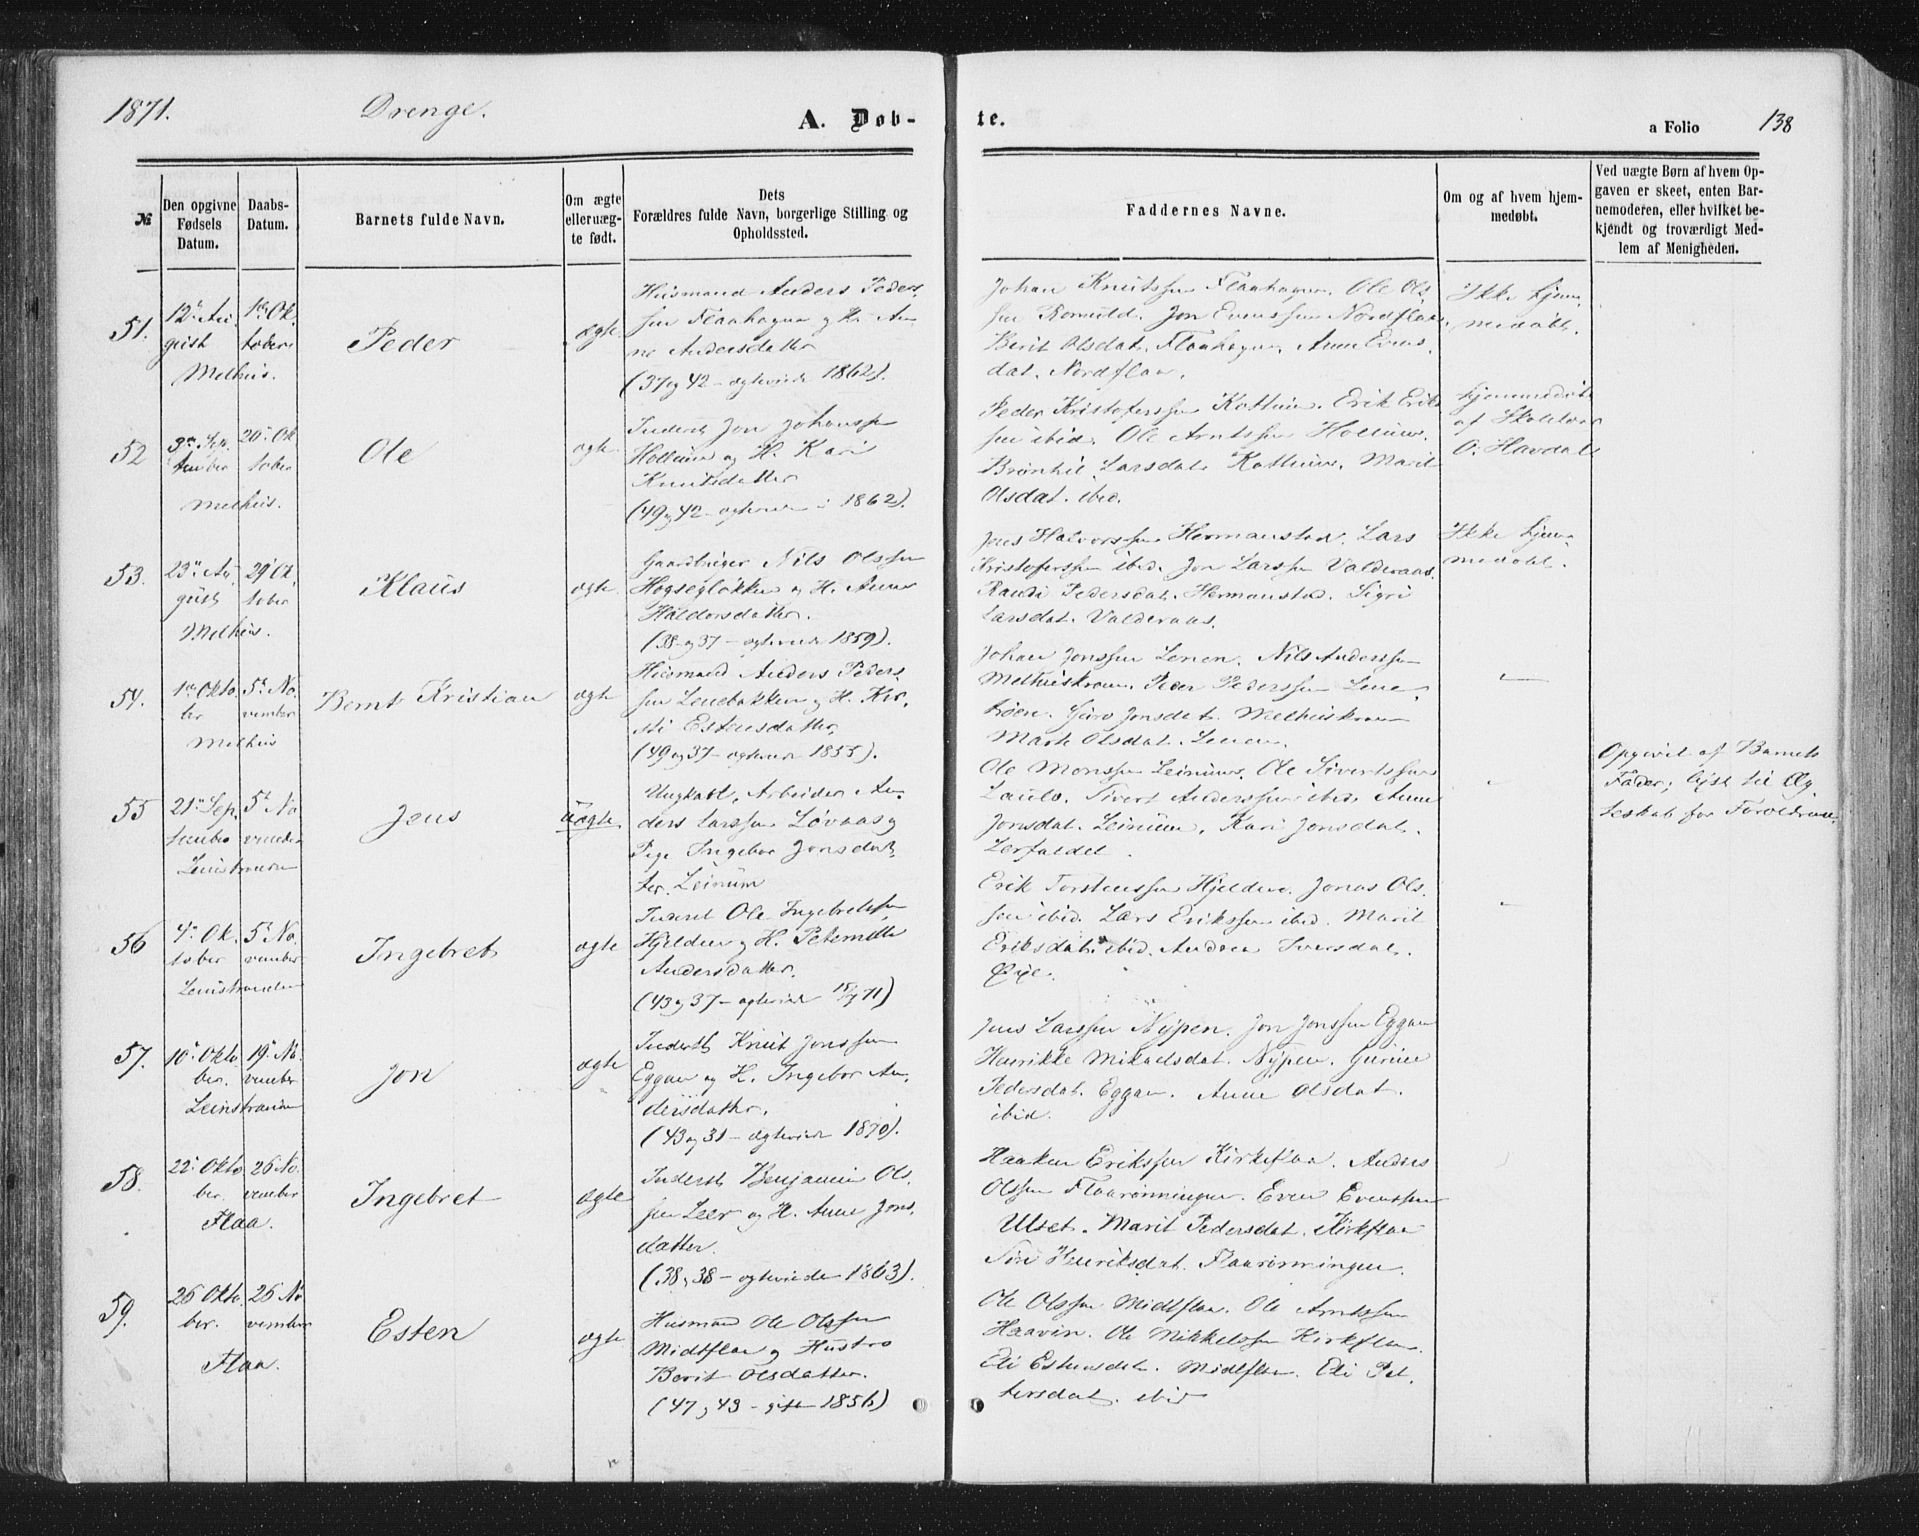 1871.
Drenge.
A. Døb-
te.
a Folio 138
№
Den opgivne
Fødsels
Datum.
Daabs-
Datum.
Barnets fulde Navn.
Om ægte
elleruæg-
te født.
Dets
Forældres fulde Navn, borgerlige Stilling og
Opholdssted.
Faddernes Navne.
Om og af hvem hjem-
medøbt.
Ved uægte Børn af hvem Op-
gaven er skeet, enten Bar-
nemoderen, eller hvilket be-
kjendt og troværdigt Med-
lem af Menigheden.
51.
12te Au-
gust
Melhus.
1ste Ok-
tober
Peder
ægte
Husmand Anders Peder-
sen Flaahagen og H. An-
ne Andersdatter
(37 og 42 - ægtevied 1862).
Johan Knutssen Flaahagen. Ole Ols-
sen Romuld. Jon Evenssen Nordflaa.
Berit Olsdat. Flaahagen. Anne Evens-
dat. Nordflaa.
Ikke hjem-
medøbt.
52
3die Sep-
tember
Melhus.
20de Ok-
tober
Ole
ægte
Inderst Jon Johanssen
Hollum og H. Kari
Knutsdatter
(49 og 42 - ægteviede i 1862).
Peder Kristoferssen Kothum. Erik Erik-
sen ibid. Ole Arntssen Hollum.
Brønhil Larsdat. Kothum. Marit
Olsdat. ibid.
Hjemmedøbt
af Skolelærer
O. Havdal
53.
23de Au-
gust
Melhus.
29 Ok-
tober
Klaus
ægte
Gaardbruger Nils Olssen
Høgsegløkken og H. Anne
Haldorsdatter.
(38 og 37 - ægteviede 1859).
Jens Halvorssen Hermanstad. Lars
Kristoferssen ibid. Jon Larssen Valderaas.
Randi Pedersdat. Hermanstad. Sigri
Larsdat. Valderaas.
Ikke hjem-
medøbt.
54.
1ste Okto-
ber
Melhus
5te No-
vember
Bernt Kristian
ægte
Husmand Anders Peder-
sen Lenebakken og H. Kir-
sti Estensdatter.
(49 og 37 - ægteviede 1855).
Johan Jonssen Lenen. Nils Anderssen
Melhuskroen. Peder Pederssen Lene-
trøen. Guro Jonsdat. Melhuskroen
Marit Olsdat. Lenen.
55
21de Sep-
tember
Leinstranden
5te No-
vember
Jens
uægte
Ungkarl, Arbeider An-
ders Larssen Løvaas og
Pige Ingebor Jonsdat-
ter Leinum
Ole Monssen Leinum. Ole Sivertssen
Laulo. Sivert Anderssen ibid. Anne
Jonsdat. Leinum. Kari Jonsdat.
Lerfaldet.
Opgivet af Barnets
Fader; lyst til Æg-
teskab for Forældrene.
56
4de Ok-
tober
Leinstranden
5te No-
vember
Ingebret
ægte
Inderst Ole Ingebretssen
Hjelden og H. Peternille
Andersdatter.
(43 og 37 - ægteviede 15/7 71)
Erik Torstenssen Hjelden. Jonas Ols-
sen ibid. Lars Erikssen ibid. Marit
Eriksdat. ibid. Andrea Iversdat.
Øye.
57.
10de Okto-
ber.
Leinstranden
19de No-
vember
Jon
ægte
Inderst Knut Jonssen
Eggan og H. Ingebor An-
dersdatter.
(43 og 31 - ægteviede 1870).
Jens Larssen Nypen. Jon Jonssen Eggan
Henrikke Mikaelsdat. Nypen. Gurine
Pedersdat. Eggan. Anne Olsdat.
ibid.
58.
22de Okto-
ber.
Flaa.
26 No-
vember
Ingebret
ægte
Inderst Benjamin Ols-
sen Leer og H. Anne Jons-
datter.
(38 og 38 - ægteviede 1863).
Haaken Erikssen Kirkeflaa. Anders
Olssen Flaarønningen. Even Evenssen
Ulset. Marit Pedersdat. Kirkflaa
Siri Henriksdat. Flaarønningen.
59.
26 Okto-
ber.
Flaa.
26 No-
vember
Esten
ægte
Husmand Ole Olssen
Midtflaa og Hustro
Berit Olsdatter.
(47 og 43 - gift 1856)
Ole Olssen Midtflaa. Ole Arntssen
Haavin. Ole Mikkelssen Kirkflaa.
Eli Estensdat. Midtflaa. Eli Pet-
tersdat. ibid